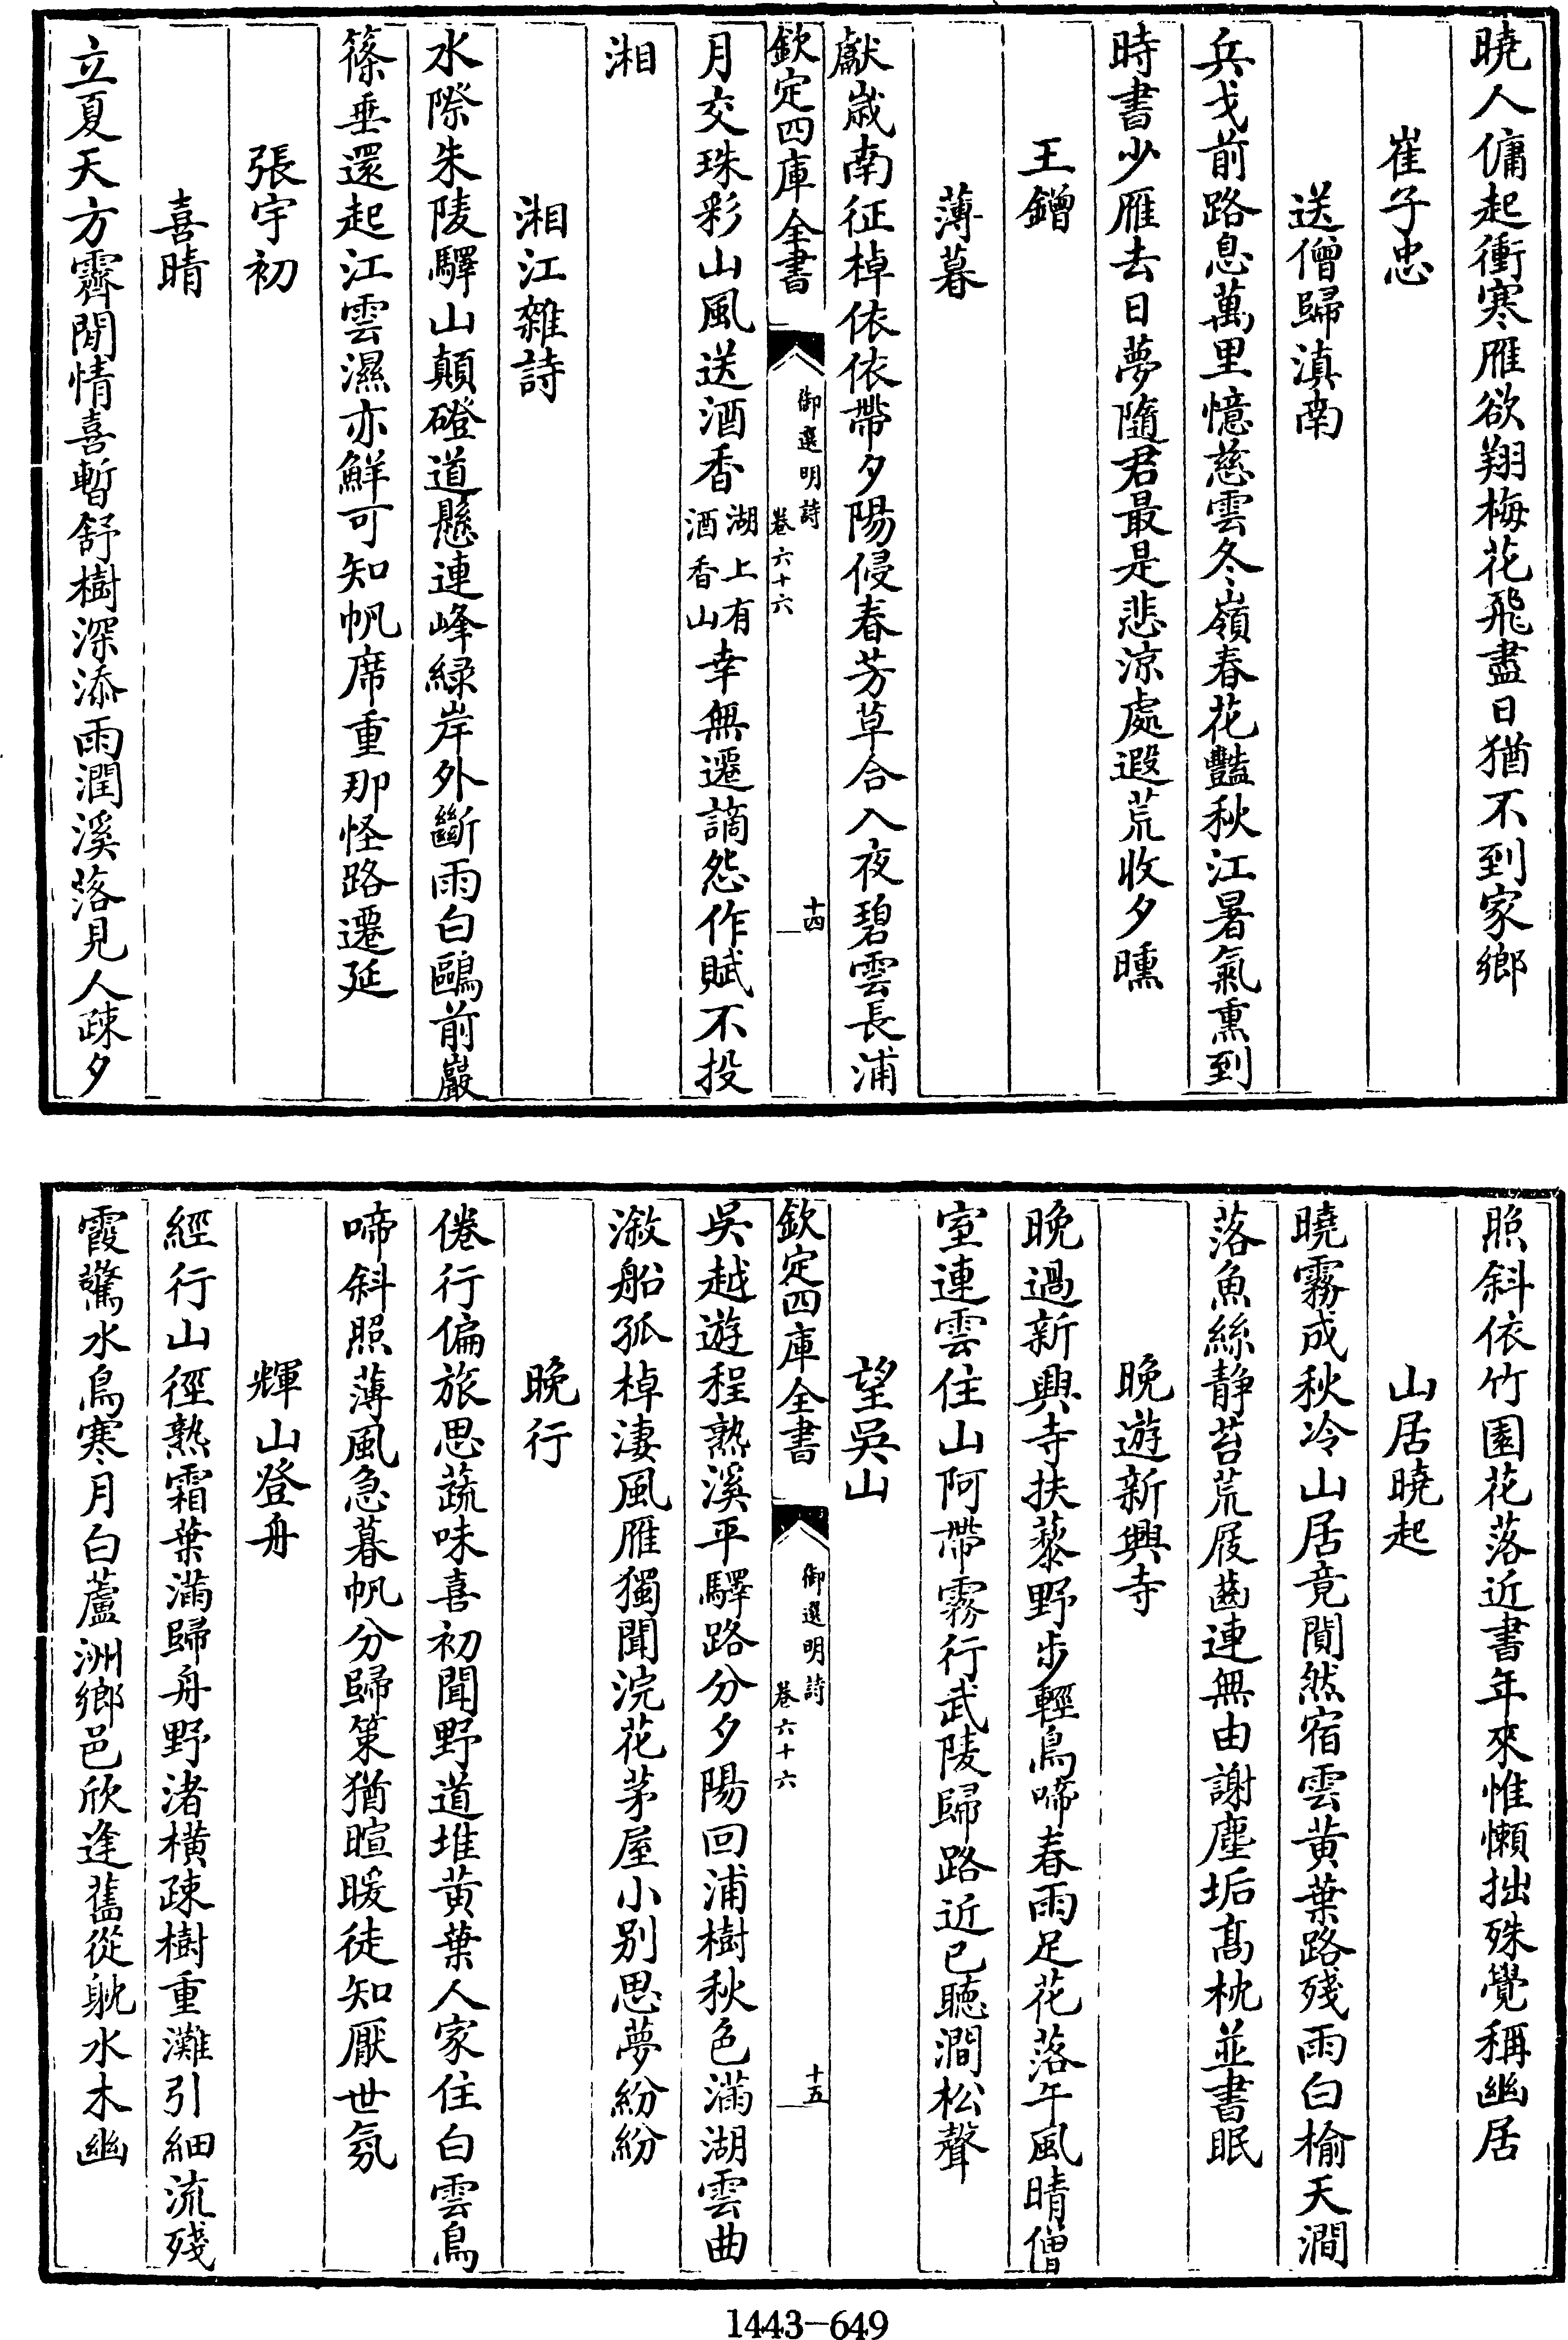 曉人傭起衝寒雁欲翔梅花飛盡日猶不到家鄉
崔子忠
送僧歸滇南
兵戈前路息萬里憶慈雲冬嶺春花豔秋江暑氣熏到
時書少雁去日夢隨君最是悲涼處遐荒收夕曛
王鏳
薄暮
獻歲南征棹依依帶夕陽侵春芳草合入夜碧雲長浦
欽定四庫全書
御選明詩
卷六十六
十四
月交珠彩山風送酒香湖上有酒香山幸無遷謫怨作賦不投
湘
湘江雜詩
水際朱陵驛山顛磴道懸連峰緑岸外斷雨白鷗前巖
篠垂還起江雲濕亦鮮可知帆席重那怪路遷延
張宇初
喜晴
立夏天方霽閒情喜暫舒樹深添雨潤溪落見人疎夕
照斜依竹園花落近書年來惟懶拙殊覺稱幽居
山居曉起
曉霧成秋冷山居竟閴然宿雲黄葉路殘雨白榆天澗
落魚絲静苔荒屐齒連無由謝塵垢髙枕並書眠
晚遊新興寺
晚過新興寺扶藜野步輕鳥啼春雨足花落午風晴僧
室連雲住山阿帶霧行武陵歸路近已聴澗松聲
望吳山
欽定四庫全書
御選明詩
卷六十六
十五
吳越遊程熟溪平驛路分夕陽回浦樹秋色滿湖雲曲
溆船孤棹淒風雁獨聞浣花茅屋小别思夢紛紛
晚行
倦行偏旅思蔬味喜初聞野道堆黄葉人家住白雲鳥
啼斜照薄風急暮帆分歸策猶暄暖徒知厭世氛
輝山登舟
經行山徑熟霜葉滿歸舟野渚横疎樹重灘引細流殘
霞驚水鳥寒月白蘆洲鄉邑欣逢舊從躭水木幽
1443-649